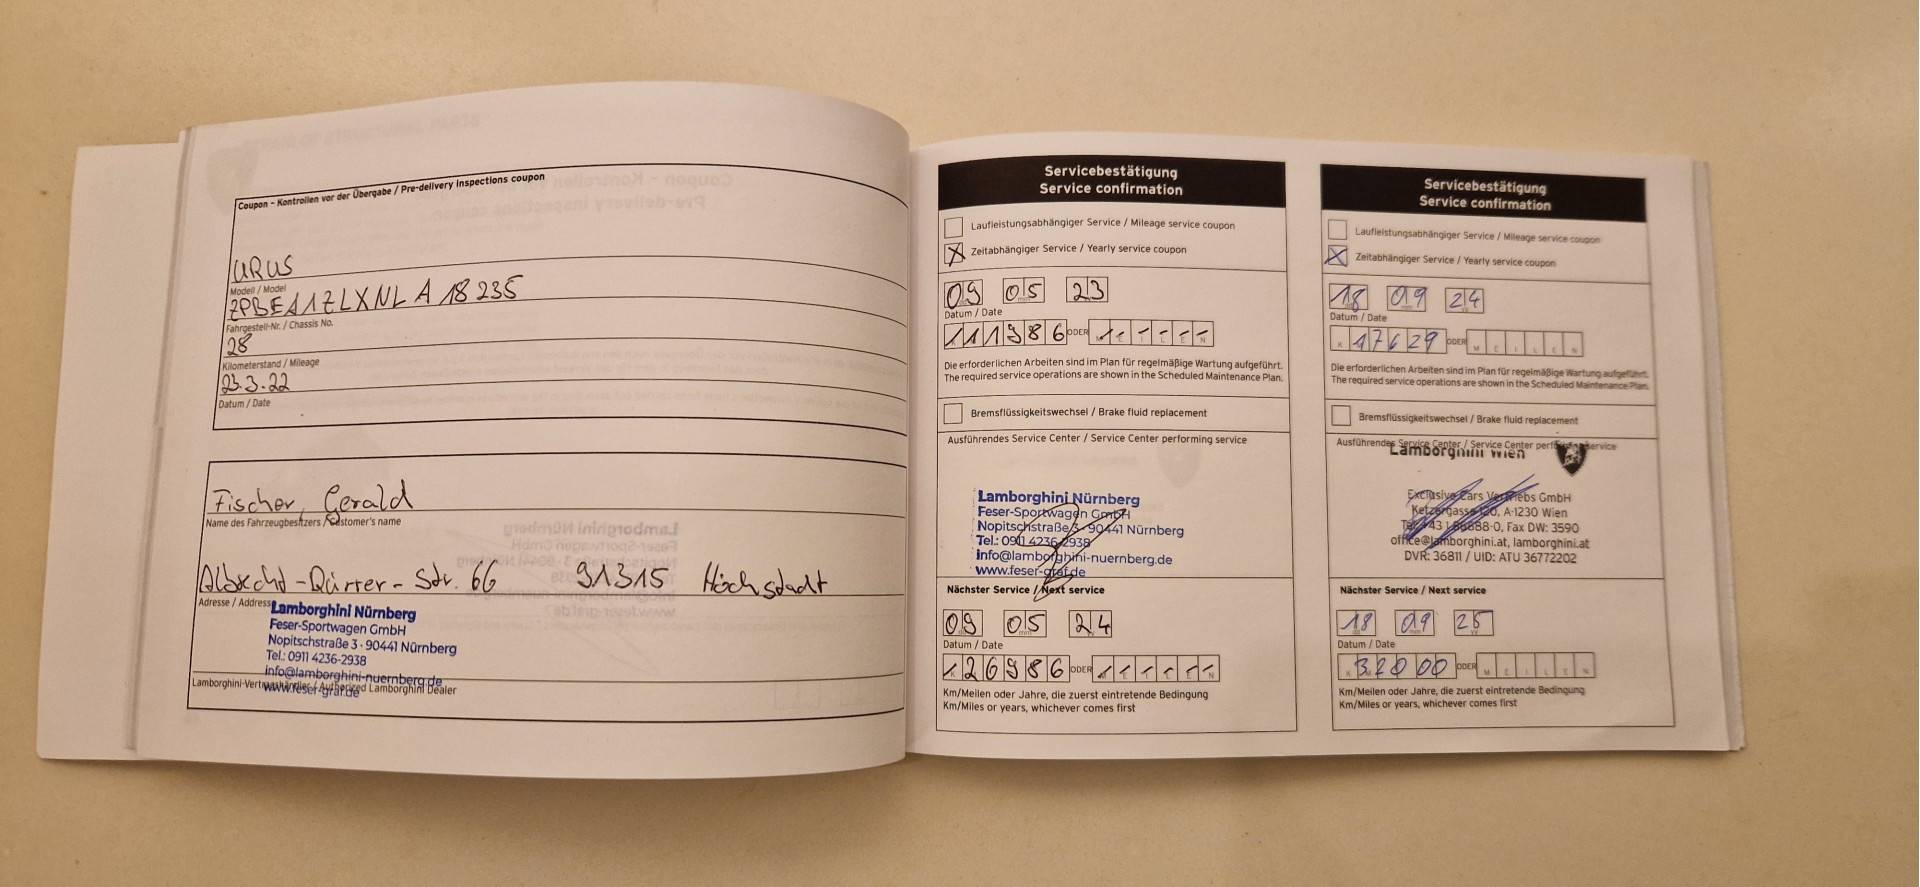 Coupon - Kontrollen vor der Übergabe / Pre-delivery inspections coupon
URUS
Modell / Model
ZPBEA1ZLXNLA18235
Fahrgestell-Nr. / Chassis No.
28
Kilometerstand / Mileage
23.3.22
Datum / Date
Fischer, Gerald
Name des Fahrzeugbesitzers / Customer's name
Albrecht-Dürrer-Str. 66 91315 Höchstadt
Adresse / Address
Lamborghini Nürnberg
Feser-Sportwagen GmbH
Nopitschstraße 3 · 90441 Nürnberg
Tel.: 0911 4236-2938
info@lamborghini-nuernberg.de
www.feser-graf.de
Lamborghini-Vertragshändler / Authorized Lamborghini Dealer
Servicebestätigung
Service confirmation
Laufleistungsabhängiger Service / Mileage service coupon
X Zeitabhängiger Service / Yearly service coupon
09 05 23
Datum / Date
111986 ODER
Die erforderlichen Arbeiten sind im Plan für regelmäßige Wartung aufgeführt.
The required service operations are shown in the Scheduled Maintenance Plan.
Bremsflüssigkeitswechsel / Brake fluid replacement
Ausführendes Service Center / Service Center performing service
Lamborghini Nürnberg
Feser-Sportwagen GmbH
Nopitschstraße 3 · 90441 Nürnberg
Tel.: 0911 4236-2938
info@lamborghini-nuernberg.de
www.feser-graf.de
Nächster Service / Next service
09 05 24
Datum / Date
126986 ODER
Km/Meilen oder Jahre, die zuerst eintretende Bedingung
Km/Miles or years, whichever comes first
Servicebestätigung
Service confirmation
Laufleistungsabhängiger Service / Mileage service coupon
X Zeitabhängiger Service / Yearly service coupon
18 09 24
Datum / Date
K 17629 ODER M E I L E N
Die erforderlichen Arbeiten sind im Plan für regelmäßige Wartung aufgeführt.
The required service operations are shown in the Scheduled Maintenance Plan.
Bremsflüssigkeitswechsel / Brake fluid replacement
Ausführendes Service Center / Service Center performing service
Lamborghini Wien
Exclusive Cars Vertriebs GmbH
Ketzergasse 120, A-1230 Wien
Tel. +43 1 86888-0, Fax DW: 3590
office@lamborghini.at, lamborghini.at
DVR: 36811 / UID: ATU 36772202
Nächster Service / Next service
18 09 25
Datum / Date
K 32000 ODER M E I L E N
Km/Meilen oder Jahre, die zuerst eintretende Bedingung
Km/Miles or years, whichever comes first